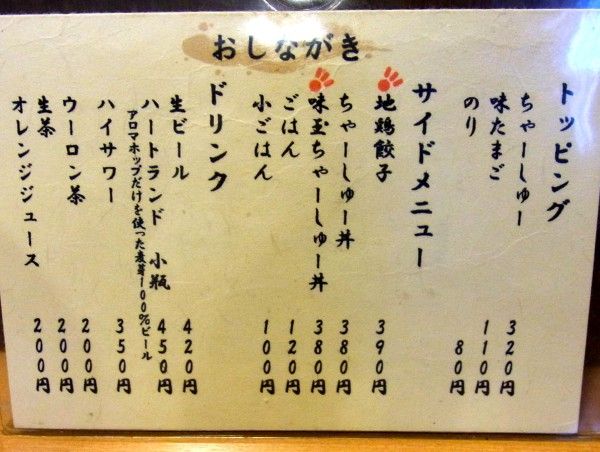 おしながき
トッピング
ちゃーしゅー 320円
味たまご 110円
のり 80円
サイドメニュー
地鶏餃子 390円
ちゃーしゅー丼 380円
味玉ちゃーしゅー丼 380円
ごはん 120円
小ごはん 100円
ドリンク
生ビール 420円
ハートランド 小瓶 450円
アロマホップだけを使った麦芽100%ビール
ハイサワー 350円
ウーロン茶 200円
生茶 200円
オレンジジュース 200円